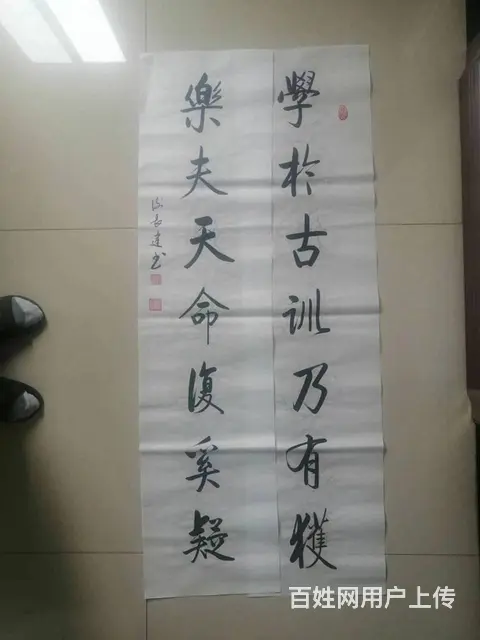 學於古訓乃有獲
樂夫天命復奚疑
百姓网用户上传